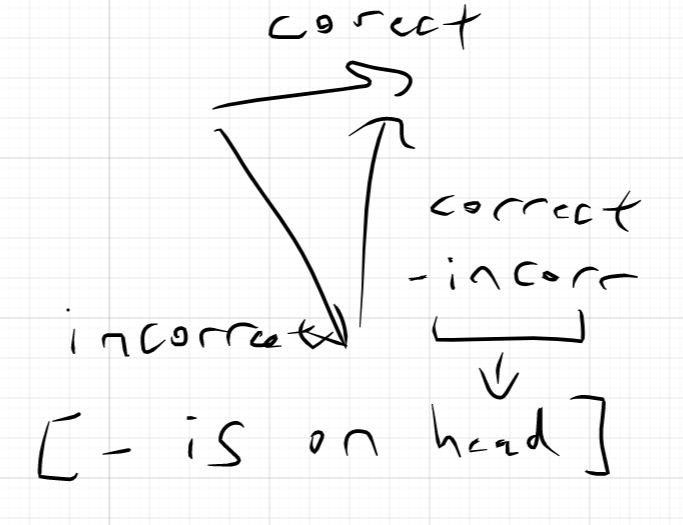 corect
correct
- incorr
incorrect
[ - is on head ]